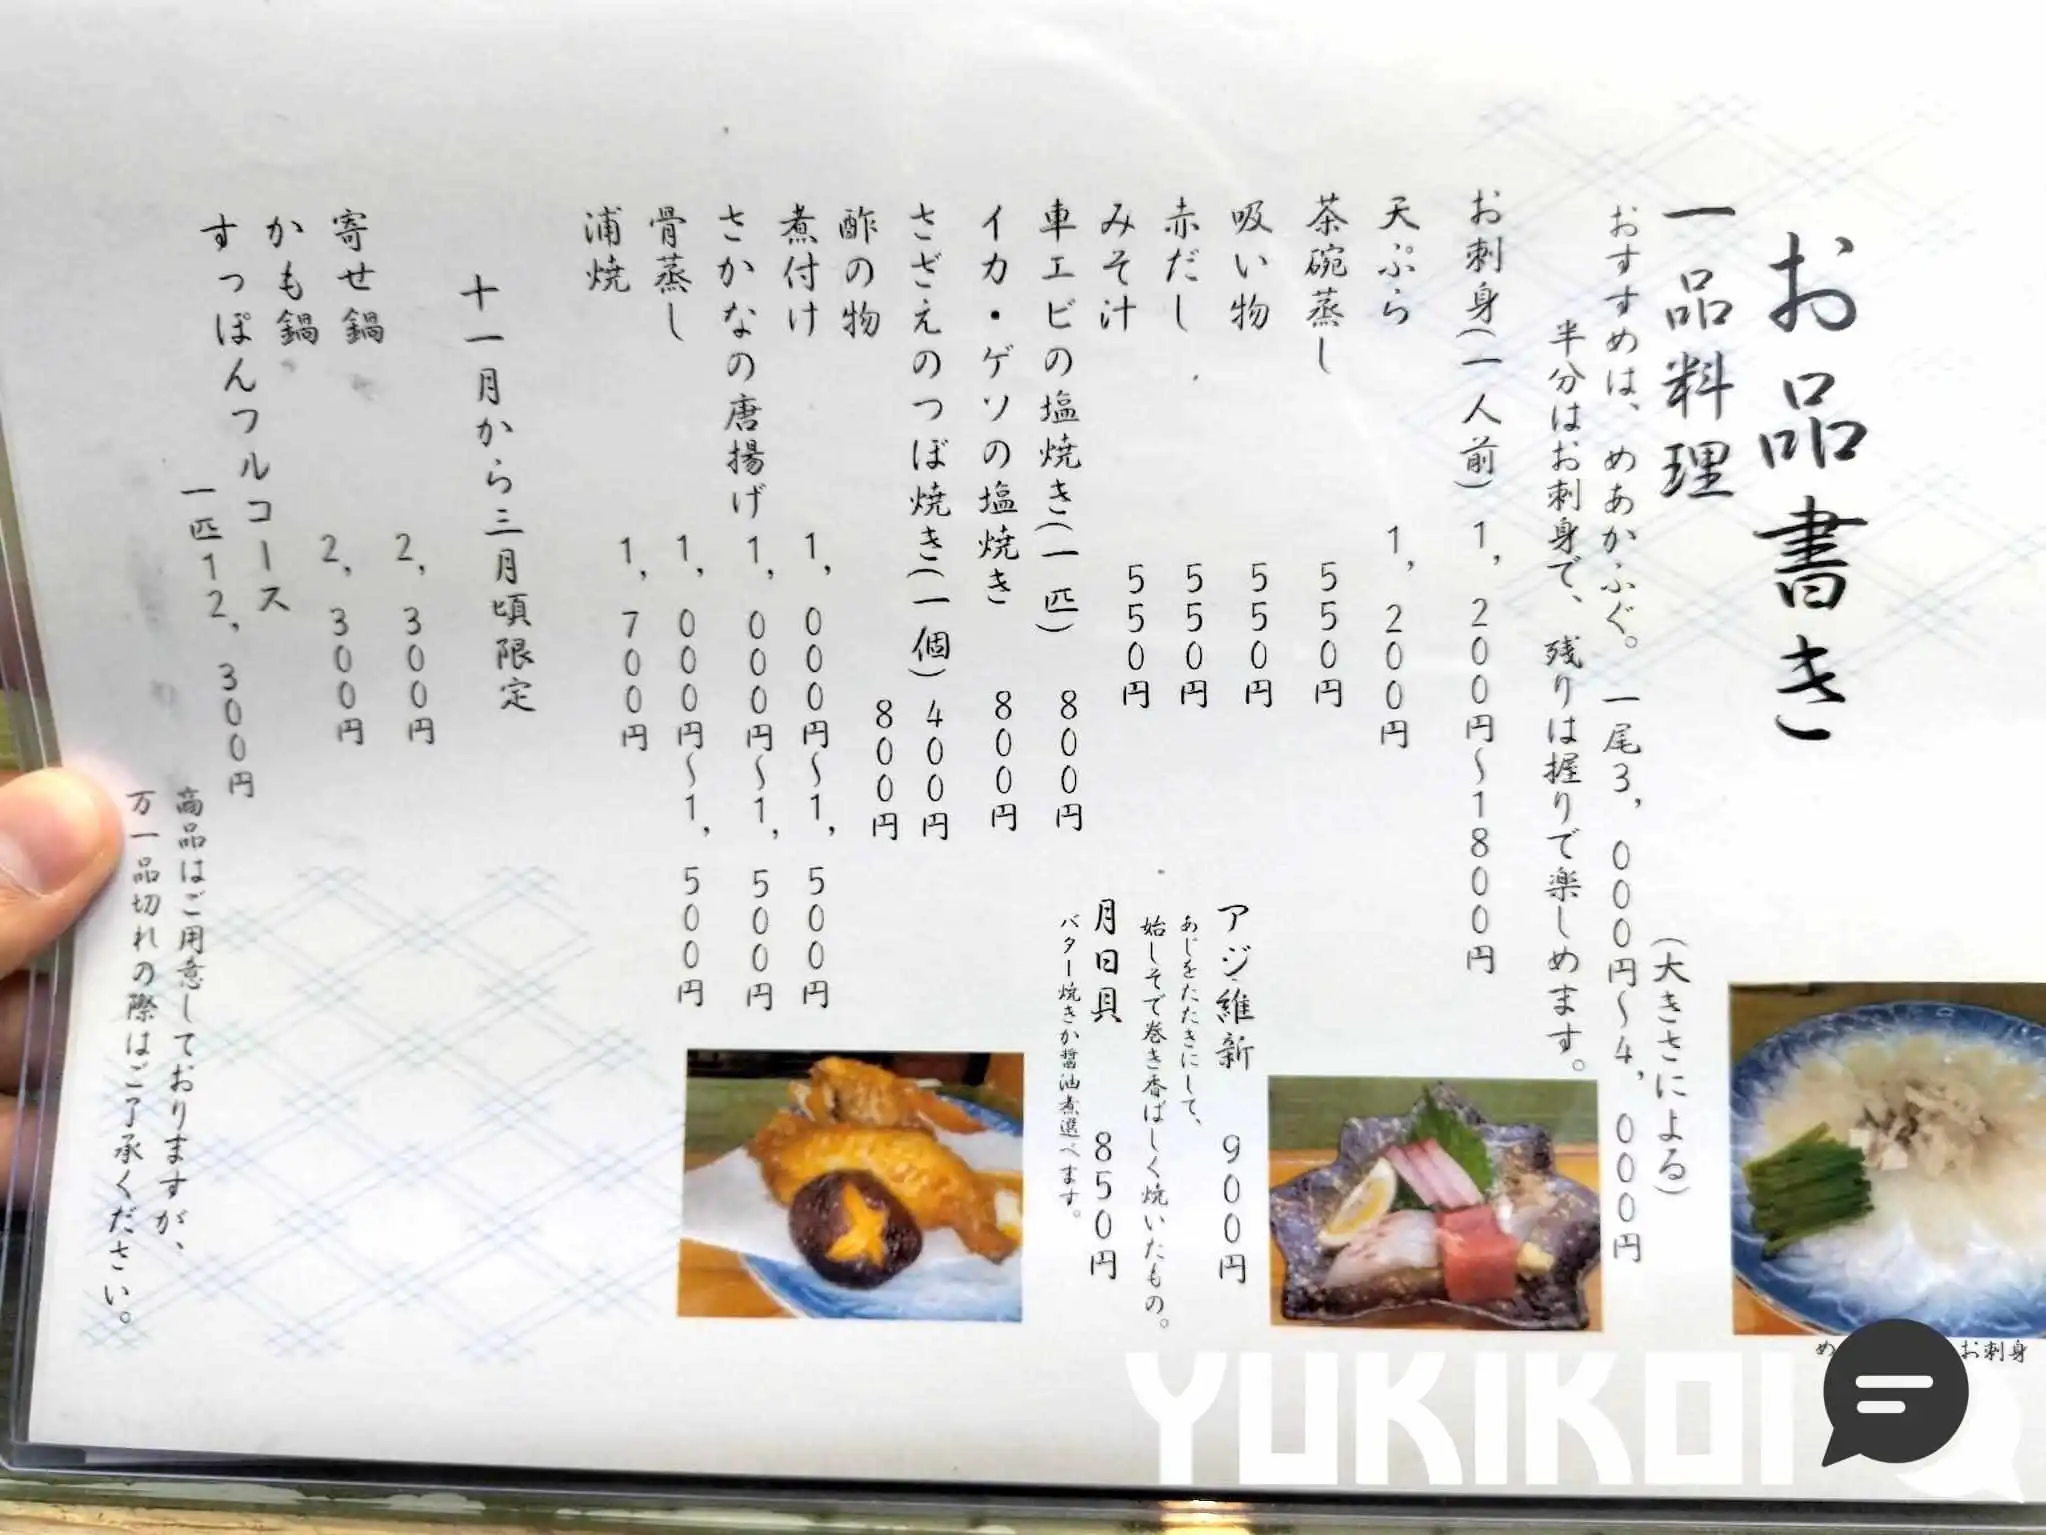 お品書き
一品料理
（大きさによる）
おすすめは、めあかふぐ。一尾3,000円〜4,000円
半分はお刺身で、残りは握りで楽しめます。
お刺身(一人前) 1,200円〜1800円
天ぷら 1,200円
茶碗蒸し 550円
吸い物 550円
赤だし 550円
みそ汁 550円
車エビの塩焼き(一匹) 800円
イカ・ゲソの塩焼き 800円
さざえのつぼ焼き(一個) 400円
酢の物 800円
煮付け 1,000円〜1,500円
さかなの唐揚げ 1,000円〜1,500円
骨蒸し 1,000円〜1,500円
浦焼 1,700円
アジ維新 900円
あじをたたきにして、
始しそで巻き香ばしく焼いたもの。
月日貝 850円
バター焼きか醤油煮選べます。
十一月から三月頃限定
寄せ鍋 2,300円
かも鍋 2,300円
すっぽんフルコース
一匹12,300円
商品はご用意しておりますが、
万一品切れの際はご了承ください。
お刺身
YUKIKOI